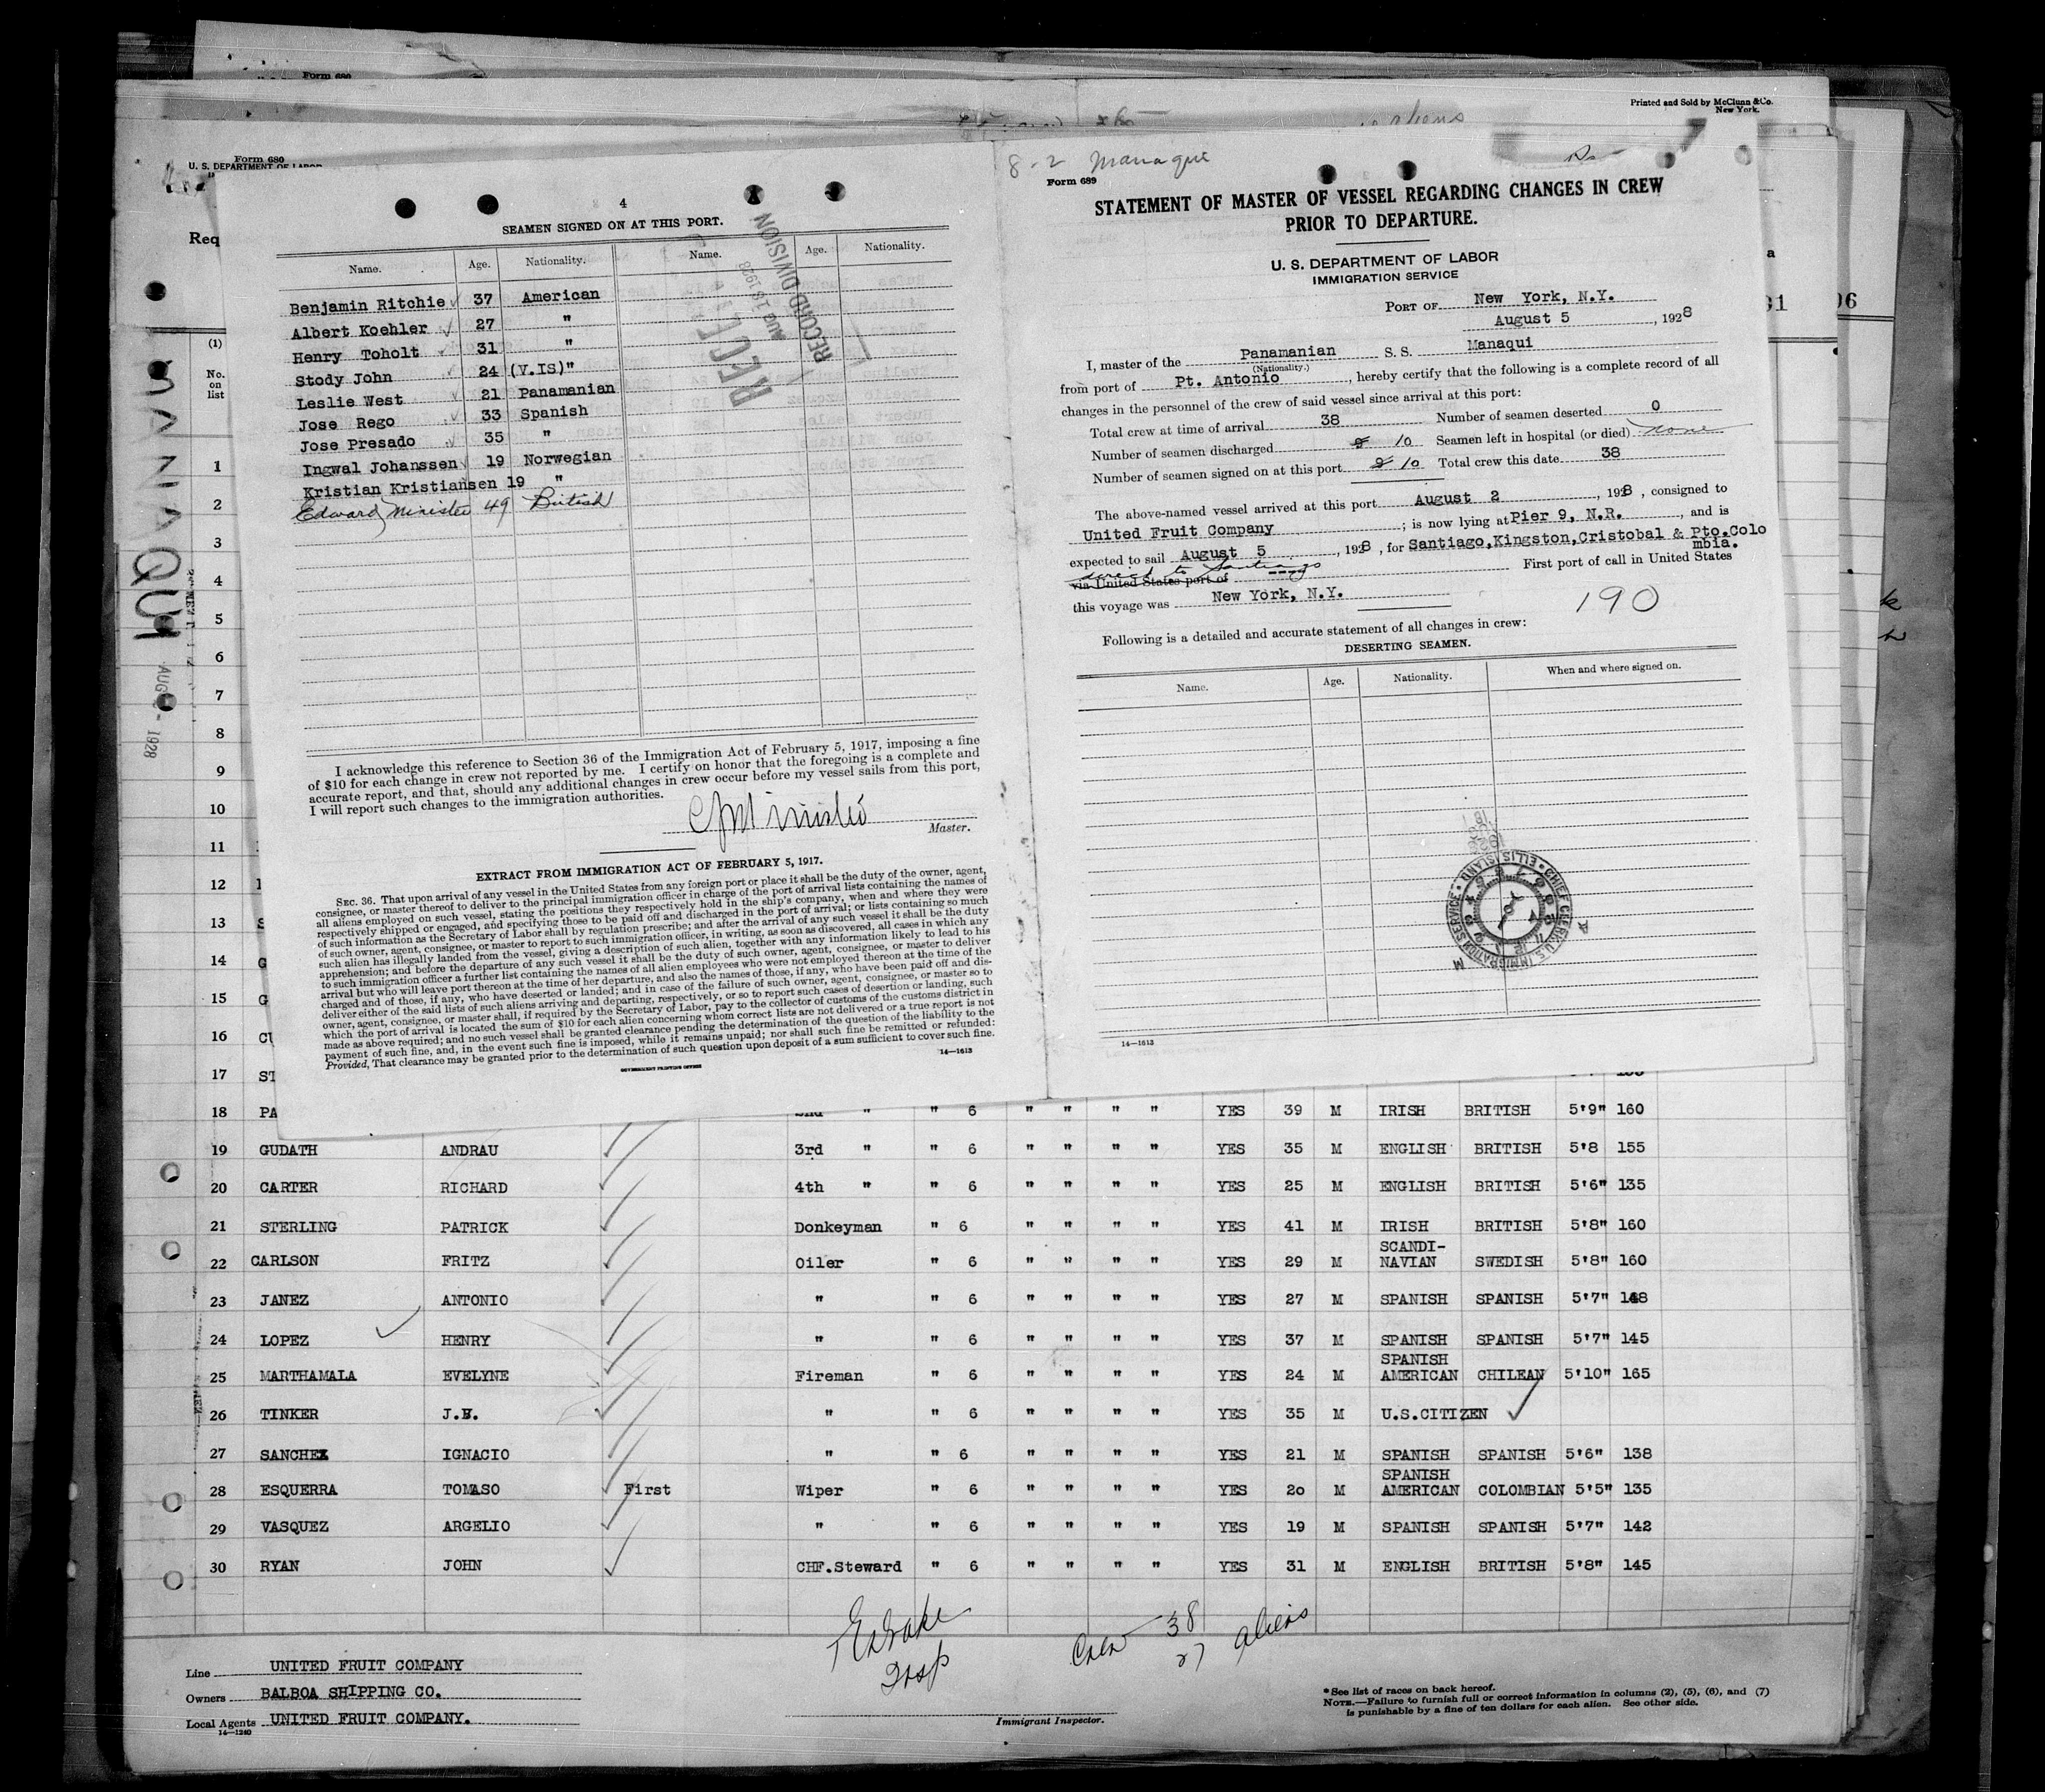 Form 680
Printed and Sold by McClunn &Co.
New York.
Form 680
U. S. DEPARTMENT OF LABOR
Req
(1)
No.
on
list
MANAQUI
AUG 2 - 1928
4
SEAMEN SIGNED ON AT THIS PORT.
Name. Age. Nationality. Name. Age. Nationality.
Benjamin Ritchie 37 American
Albert Koehler 27 "
Henry Toholt 31 "
Stody John 24 (V.IS)"
Leslie West 21 Panamanian
Jose Rego 33 Spanish
Jose Presado 35 "
Ingwal Johanssen 19 Norwegian
Kristian Kristiansen 19 "
Edward Minister 49 British
RECORD DIVISION
AUG 16 1928
I acknowledge this reference to Section 36 of the Immigration Act of February 5, 1917, imposing a fine
of $10 for each change in crew not reported by me. I certify on honor that the foregoing is a complete and
accurate report, and that, should any additional changes in crew occur before my vessel sails from this port,
I will report such changes to the immigration authorities.
Master.
EXTRACT FROM IMMIGRATION ACT OF FEBRUARY 5, 1917.
SEC. 36. That upon arrival of any vessel in the United States from any foreign port or place it shall be the duty of the owner, agent,
consignee, or master thereof to deliver to the principal immigration officer in charge of the port of arrival lists containing the names of
all aliens employed on such vessel, stating the positions they respectively hold in the ship's company, when and where they were
respectively shipped or engaged, and specifying those to be paid off and discharged in the port of arrival; or lists containing so much
of such information as the Secretary of Labor shall by regulation prescribe; and after the arrival of any such vessel it shall be the duty
of such owner, agent, consignee, or master to report to such immigration officer, in writing, as soon as discovered, all cases in which any
such alien has illegally landed from the vessel, giving a description of such alien, together with any information likely to lead to his
apprehension; and before the departure of any such vessel it shall be the duty of such owner, agent, consignee, or master to deliver
to such immigration officer a further list containing the names of all alien employees who were not employed thereon at the time of the
arrival but who will leave port thereon at the time of her departure, and also the names of those, if any, who have been paid off and dis-
charged and of those, if any, who have deserted or landed; and in case of the failure of such owner, agent, consignee, or master so to
deliver either of the said lists of such aliens arriving and departing, respectively, or so to report such cases of desertion or landing, such
owner, agent, consignee, or master shall, if required by the Secretary of Labor, pay to the collector of customs of the customs district in
which the port of arrival is located the sum of $10 for each alien concerning whom correct lists are not delivered or a true report is not
made as above required; and no such vessel shall be granted clearance pending the determination of the question of the liability to the
payment of such fine, and, in the event such fine is imposed, while it remains unpaid; nor shall such fine be remitted or refunded:
Provided, That clearance may be granted prior to the determination of such question upon deposit of a sum sufficient to cover such fine.
14—1613
GOVERNMENT PRINTING OFFICE
8-2 Manaqui
Form 689
STATEMENT OF MASTER OF VESSEL REGARDING CHANGES IN CREW
PRIOR TO DEPARTURE.
U. S. DEPARTMENT OF LABOR
IMMIGRATION SERVICE
PORT OF New York, N.Y.
August 5, 1928
I, master of the Panamanian S. S. Manaqui
(Nationality.)
from port of Pt. Antonio, hereby certify that the following is a complete record of all
changes in the personnel of the crew of said vessel since arrival at this port:
Total crew at time of arrival 38 Number of seamen deserted 0
Number of seamen discharged 10 Seamen left in hospital (or died) none
Number of seamen signed on at this port 10 Total crew this date 38
The above-named vessel arrived at this port August 2, 1928, consigned to
United Fruit Company; is now lying at Pier 9, N.R., and is
expected to sail August 5, 1928, for Santiago,Kingston,Cristobal & Pto.Colo
mbia.
direct to Santiago
via United States port of ---- First port of call in United States
this voyage was New York, N.Y.
190
Following is a detailed and accurate statement of all changes in crew:
DESERTING SEAMEN.
Name. Age. Nationality. When and where signed on.
CHIEF CLERK U.S. IMMIGRATION SERVICE ELLIS ISLAND
14—1613
1
2
3
4
5
6
7
8
9
10
11
12
13 S
14 G
15 G
16 CU
17 ST
18 PA 2nd " " 6 " " " " YES 39 M IRISH BRITISH 5'9" 160
19 GUDATH ANDRAU 3rd " " 6 " " " " YES 35 M ENGLISH BRITISH 5'8 155
20 CARTER RICHARD 4th " " 6 " " " " YES 25 M ENGLISH BRITISH 5'6" 135
21 STERLING PATRICK Donkeyman " 6 " " " " YES 41 M IRISH BRITISH 5'8" 160
22 CARLSON FRITZ Oiler " 6 " " " " YES 29 M SCANDI-
NAVIAN SWEDISH 5'8" 160
23 JANEZ ANTONIO " " 6 " " " " YES 27 M SPANISH SPANISH 5'7" 148
24 LOPEZ HENRY " " 6 " " " " YES 37 M SPANISH SPANISH 5'7" 145
25 MARTHAMALA EVELYNE Fireman " 6 " " " " YES 24 M SPANISH
AMERICAN CHILEAN 5'10" 165
26 TINKER J.H. " " 6 " " " " YES 35 M U.S.CITIZEN
27 SANCHEZ IGNACIO " " 6 " " " " YES 21 M SPANISH SPANISH 5'6" 138
28 ESQUERRA TOMASO First Wiper " 6 " " " " YES 20 M SPANISH
AMERICAN COLOMBIAN 5'5" 135
29 VASQUEZ ARGELIO " " 6 " " " " YES 19 M SPANISH SPANISH 5'7" 142
30 RYAN JOHN CHF.Steward " 6 " " " " YES 31 M ENGLISH BRITISH 5'8" 145
Crew 38
27 aliens
Line UNITED FRUIT COMPANY
Owners BALBOA SHIPPING CO.
Local Agents UNITED FRUIT COMPANY.
14—1240
Immigrant Inspector.
*See list of races on back hereof.
NOTE.—Failure to furnish full or correct information in columns (2), (5), (6), and (7)
is punishable by a fine of ten dollars for each alien. See other side.